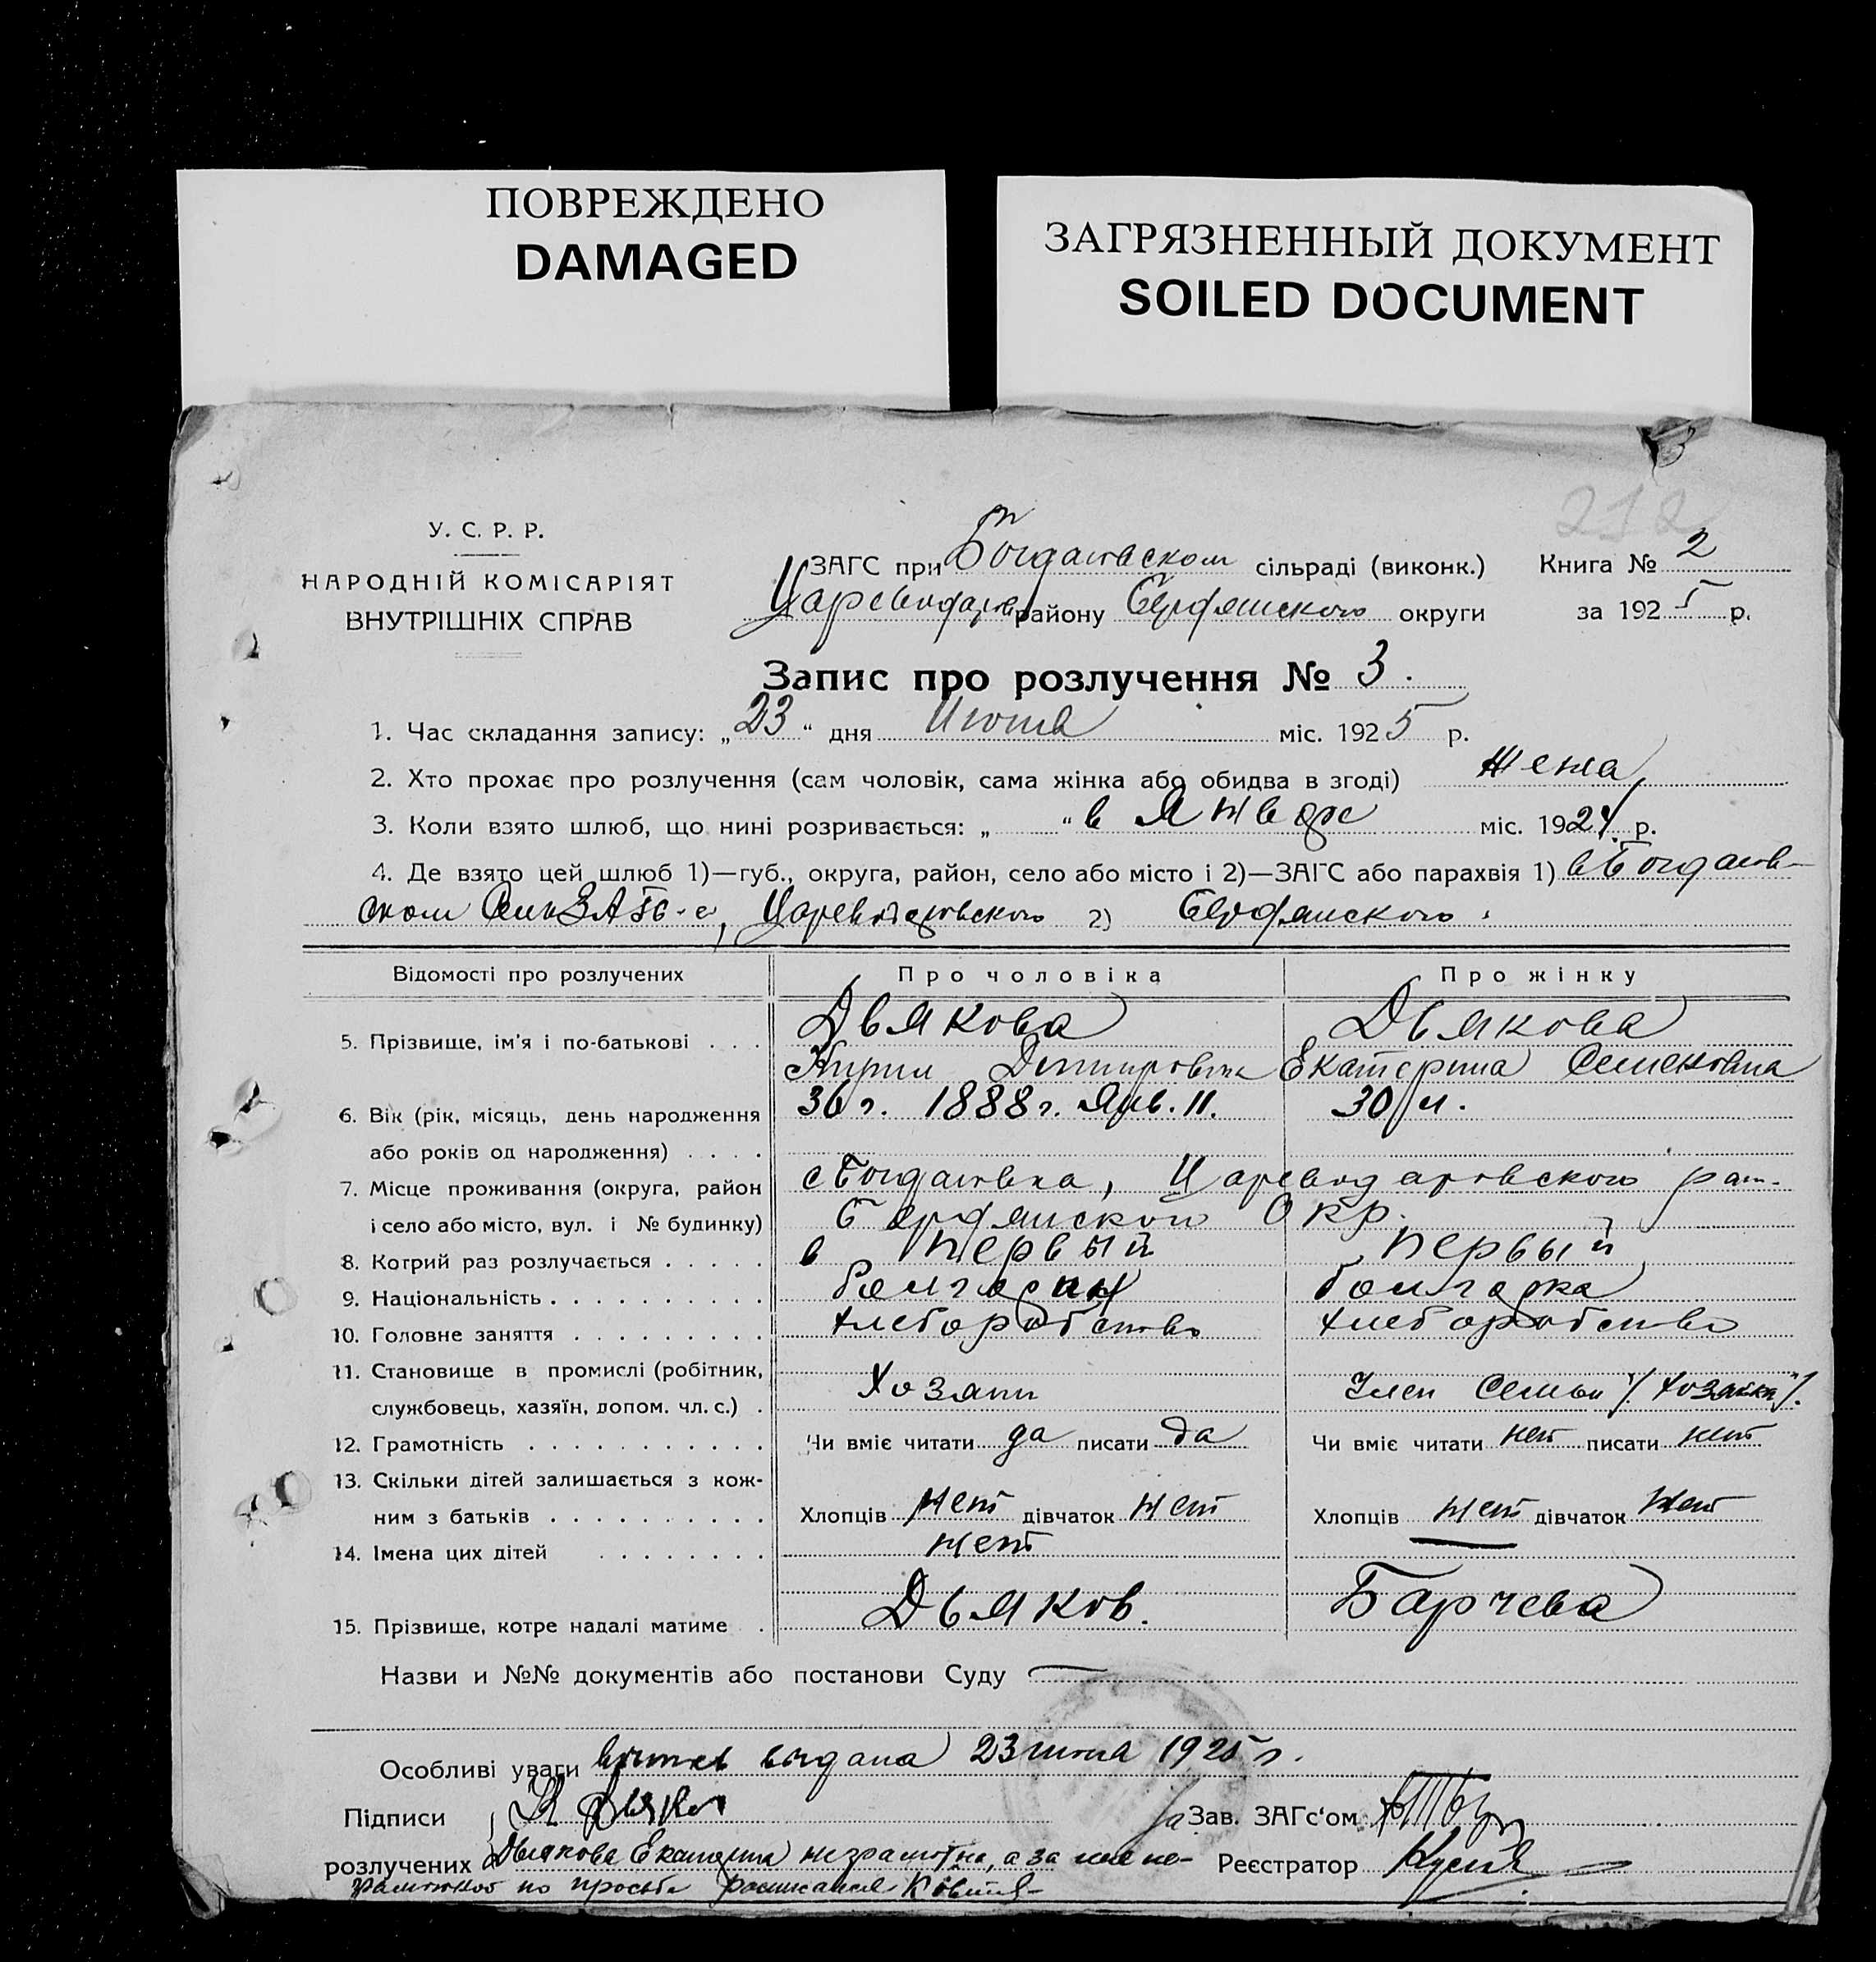 ПОВРЕЖДЕНО
DAMAGED
ЗАГРЯЗНЕННЫЙ ДОКУМЕНТ
SOILED DOCUMENT
212
У. С. Р. Р.
НАРОДНІЙ КОМІСАРІЯТ
ВНУТРІШНІХ СПРАВ
ЗАГС при Богдановском сільраді (виконк.) Книга № 2
Царевода району Бердянского округи за 1925 р.
Запис про розлучення № 3.
1. Час складання запису: „23“ дня Июня міс. 1925 р.
2. Хто прохає про розлучення (сам чоловік, сама жінка або обидва в згоді) жена
3. Коли взято шлюб, що нині розривається: „ “ в Январе міс. 1924 р.
4. Де взято цей шлюб 1)—губ., округа, район, село або місто і 2)—ЗАГС або парахвія 1) в Богданов-
ском ЗАГС-е, Цареводаровского 2) Бердянского
Відомості про розлучених
Про чоловіка
Про жінку
5. Прізвище, ім'я і по-батькові . . . Дьякова Дьякова
Кирил Екатерина Семеновна
6. Вік (рік, місяць, день народження 36 г. 1888 г. Янв. 11. 30 л.
або років од народження) . . . .
7. Місце проживання (округа, район с Богдановка, Цареводаровского
і село або місто, вул. і № будинку) Бердянской Окр.
8. Котрий раз розлучається . . . . . в первый первый
9. Національність . . . . . . . . . . болгарин болгарка
10. Головне заняття . . . . . . . . . хлеборобство хлеборобство
11. Становище в промислі (робітник, Хозяин Член Семьи /хозяйка/.
службовець, хазяїн, допом. чл. с.) .
12. Грамотність . . . . . . . . . . . Чи вміє читати да писати да Чи вміє читати нет писати нет
13. Скільки дітей залишається з кож-
ним з батьків . . . . . . . . . . Хлопців нет дівчаток нет Хлопців нет дівчаток нет
14. Імена цих дітей . . . . . . . . нет —
15. Прізвище, котре надалі матиме . Дьяков. Барчева
Назви и №№ документів або постанови Суду —
Особливі уваги выдана 23 июня 1925 г.
Підписи К Дьяков Зав. ЗАГс'ом
розлучених Дьякова Екатерина неграмотна, а за нее не-
грамотной по просьбе росписался Реєстратор